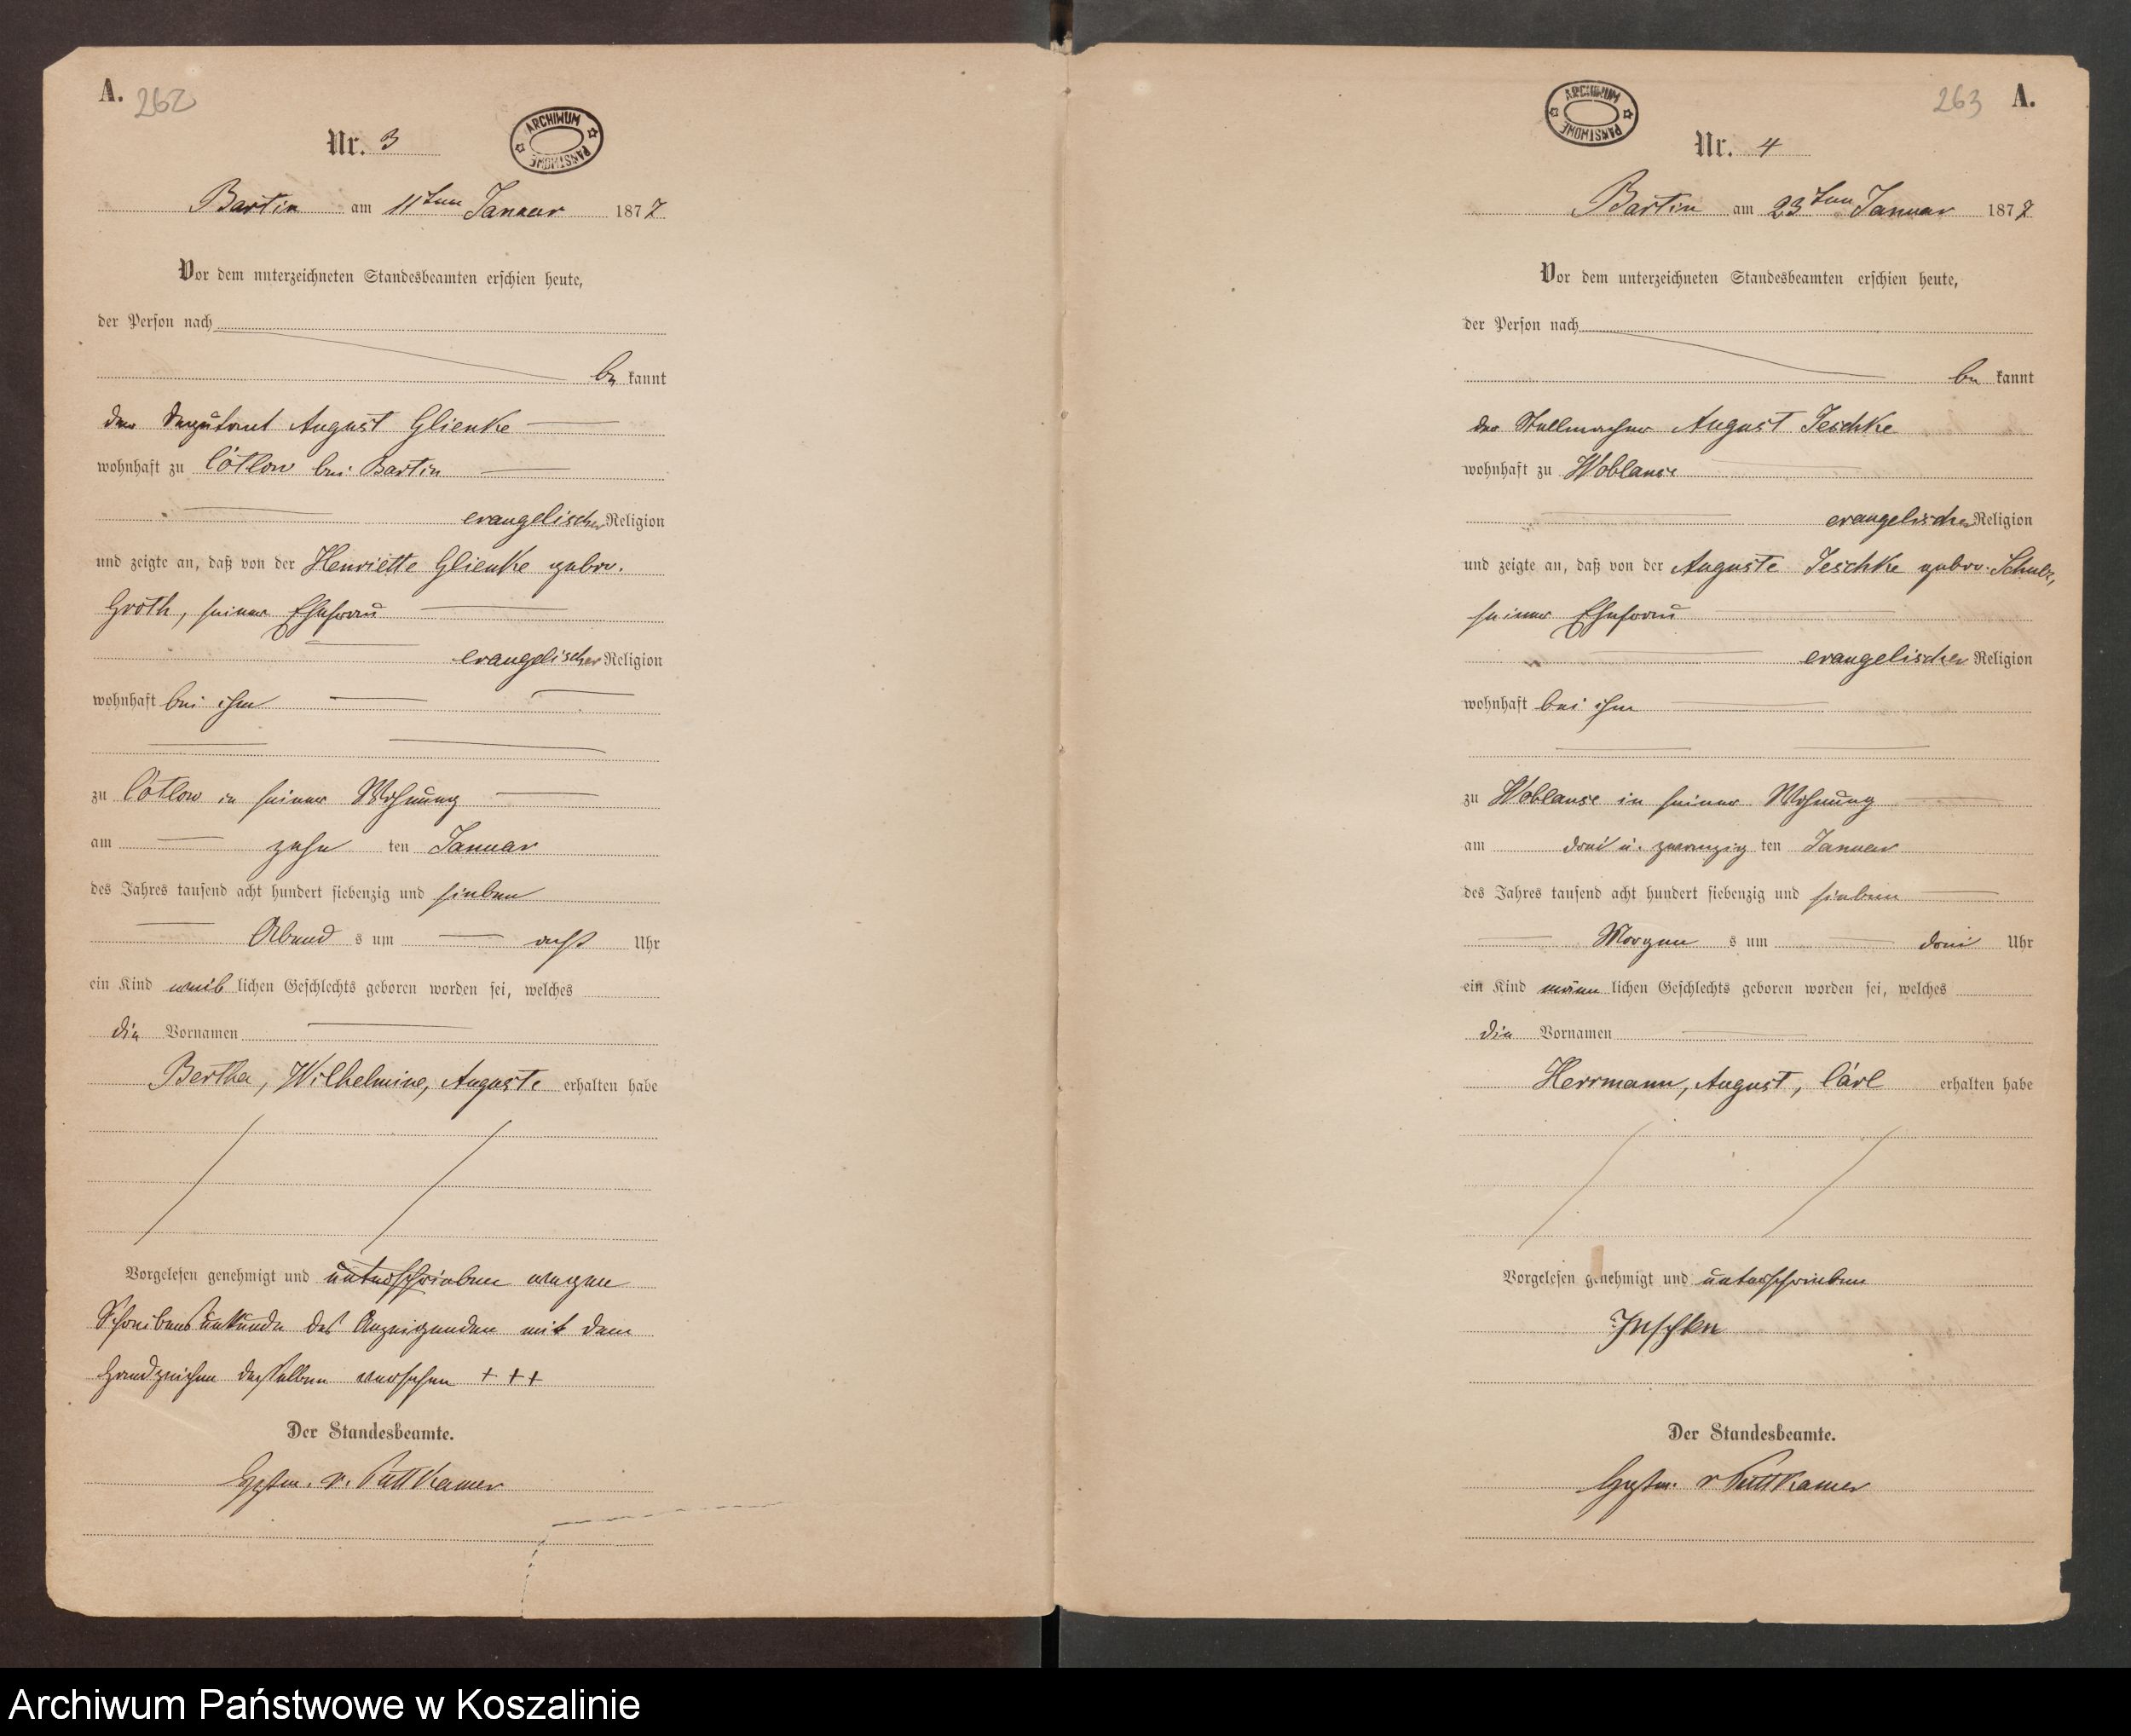 A. 262
ARCHIWUM PAŃSTWOWE
Nr. 3
Bartin am 11ten Januar 1877
Vor dem unterzeichneten Standesbeamten erschien heute,
der Person nach
be kannt
der Deputant August Glienke
wohnhaft zu Cötlow bei Bartin
evangelischer Religion
und zeigte an, daß von der Henriette Glienke gebor.
Groth, seiner Ehefrau
evangelischer Religion
wohnhaft bei ihm
zu Cötlow in seiner Wohnung
am zehn ten Januar
des Jahres tausend acht hundert siebenzig und sieben
Abend s um acht Uhr
ein Kind weib lichen Geschlechts geboren worden sei, welches
die Vornamen
Bertha, Wilhelmine, Auguste erhalten habe
Vorgelesen genehmigt und unterschrieben wegen
Schreibensunkunde des Anzeigenden mit dem
Handzeichen desselben versehen + + +
Der Standesbeamte.
v. Puttkamer
263 A.
ARCHIWUM PAŃSTWOWE
Nr. 4
Bartin am 23ten Januar 1877
Vor dem unterzeichneten Standesbeamten erschien heute,
der Person nach
be kannt
der Stellmacher August Jeschke
wohnhaft zu Woblanse
evangelischer Religion
und zeigte an, daß von der Auguste Jeschke gebor. Schulz,
seiner Ehefrau
evangelischer Religion
wohnhaft bei ihm
zu Woblanse in seiner Wohnung
am drei u. zwanzig ten Januar
des Jahres tausend acht hundert siebenzig und sieben
Morgen s um drei Uhr
ein Kind männ lichen Geschlechts geboren worden sei, welches
die Vornamen
Herrmann, August, Carl erhalten habe
Vorgelesen genehmigt und unterschrieben
Jeschke
Der Standesbeamte.
v Puttkamer
Archiwum Państwowe w Koszalinie